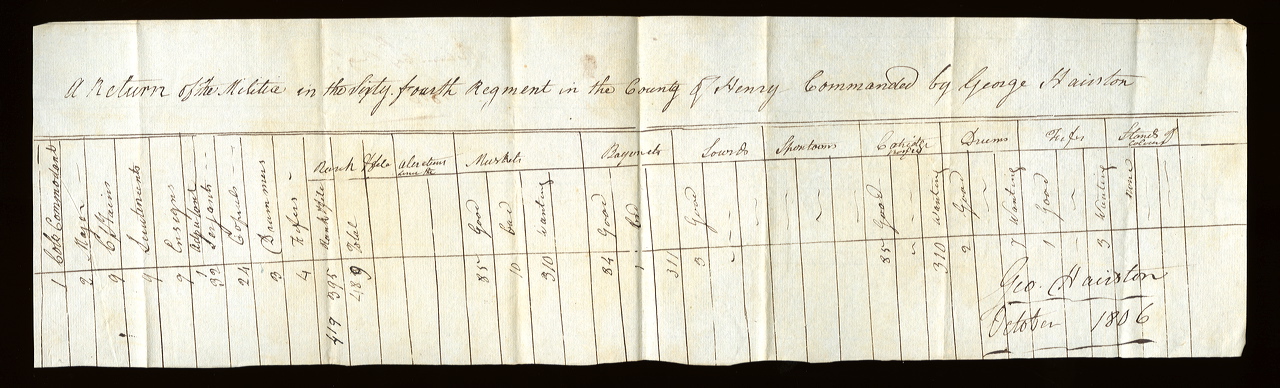 A Return of the Militia in the Sixty fourth Regment in the County of Henry Commanded by George Hairston
Rank & file Muskets Bayonets Swords Spontoons Drums Fifes Stands of Colours
Colo Commondant Major Captains Lieutenants Ensigns Serjants Corpals Drummers Fifers Rank & file Total Good bad wanting Good bad Good Good wanting Good Wanting Good Wanting none
1 2 9 9 9 1 32 24 3 4 395 489 85 10 310 84 1 311 3 85 310 2 7 1 3
419
Geo. Hairston
October 1806